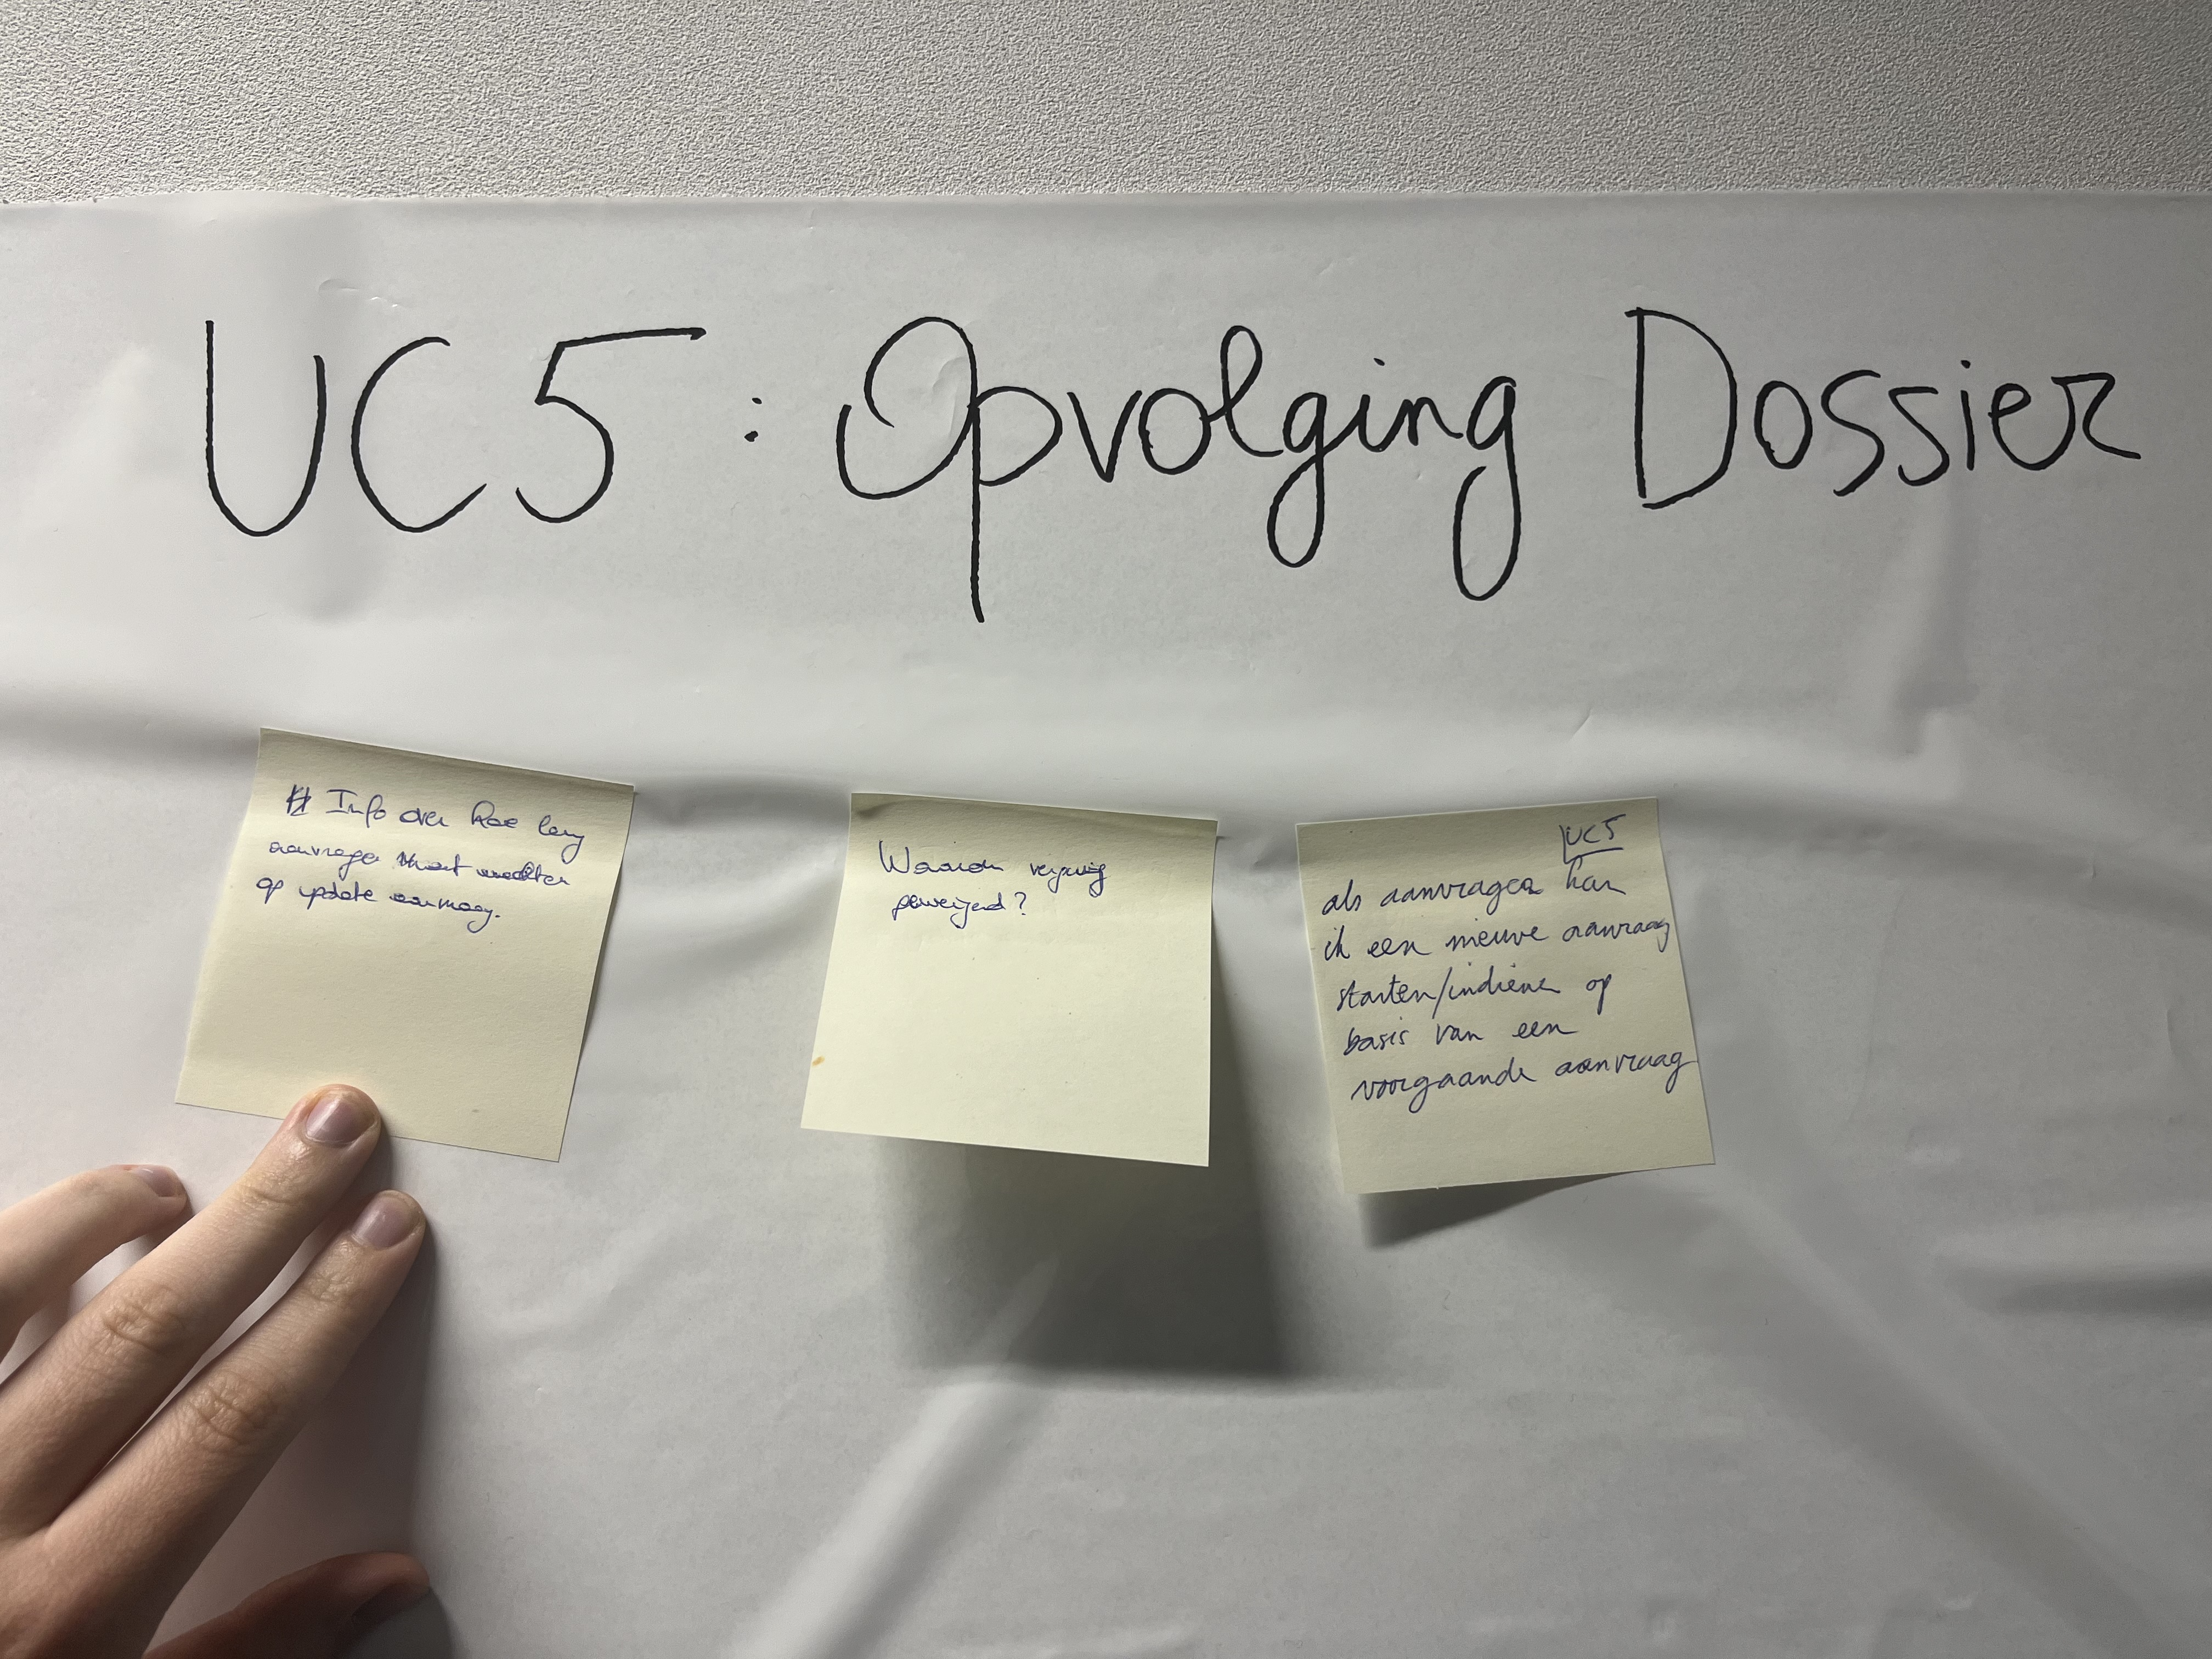 UC5 : Opvolging Dossier
Info over hoe lang
aanvrager moet wachten
op update aanvraag.
Waarom
geweigerd?
UC5
als aanvrager kan
ik een nieuwe aanvraag
starten/indienen op
basis van een
voorgaande aanvraag